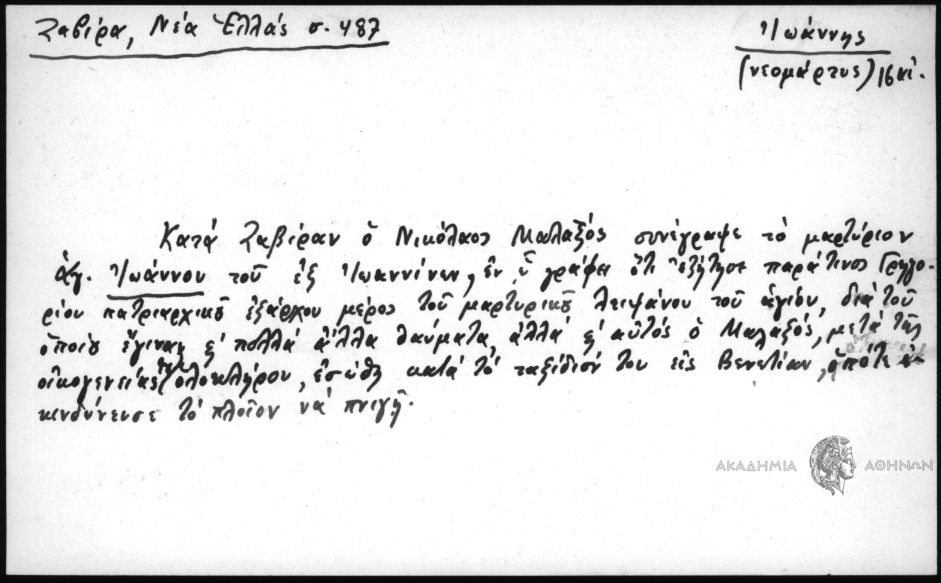 Ζαβίρα, Νέα Ἑλλάς σ. 487
Ἰωάννης
(νεομάρτυς) 16 αἰ.
Κατά Ζαβίραν ὁ Νικόλαος Μαλαξός συνέγραψε τὸ μαρτύριον
ἁγ. Ἰωάννου τοῦ ἐξ Ἰωαννίνων, ἐν ᾧ γράφει ὅτι ἐζήτησε παρά τινος Γρηγο-
ρίου πατριαρχικοῦ ἐξάρχου μέρος τοῦ μαρτυρικοῦ λειψάνου τοῦ ἁγίου, διά τοῦ
ὁποίου ἔγιναν κ' πολλά ἄλλα θαύματα, ἀλλά κ' αὐτός ὁ Μαλαξός, μετά τῆς
οἰκογενείας του ὁλοκλήρου, ἐσώθη κατά τό ταξίδιόν του εἰς Βενετίαν, ὁπότε ἐ-
κινδύνευσε τὸ πλοῖον νά πνιγῇ.
ΑΚΑΔΗΜΙΑ ΑΘΗΝΩΝ